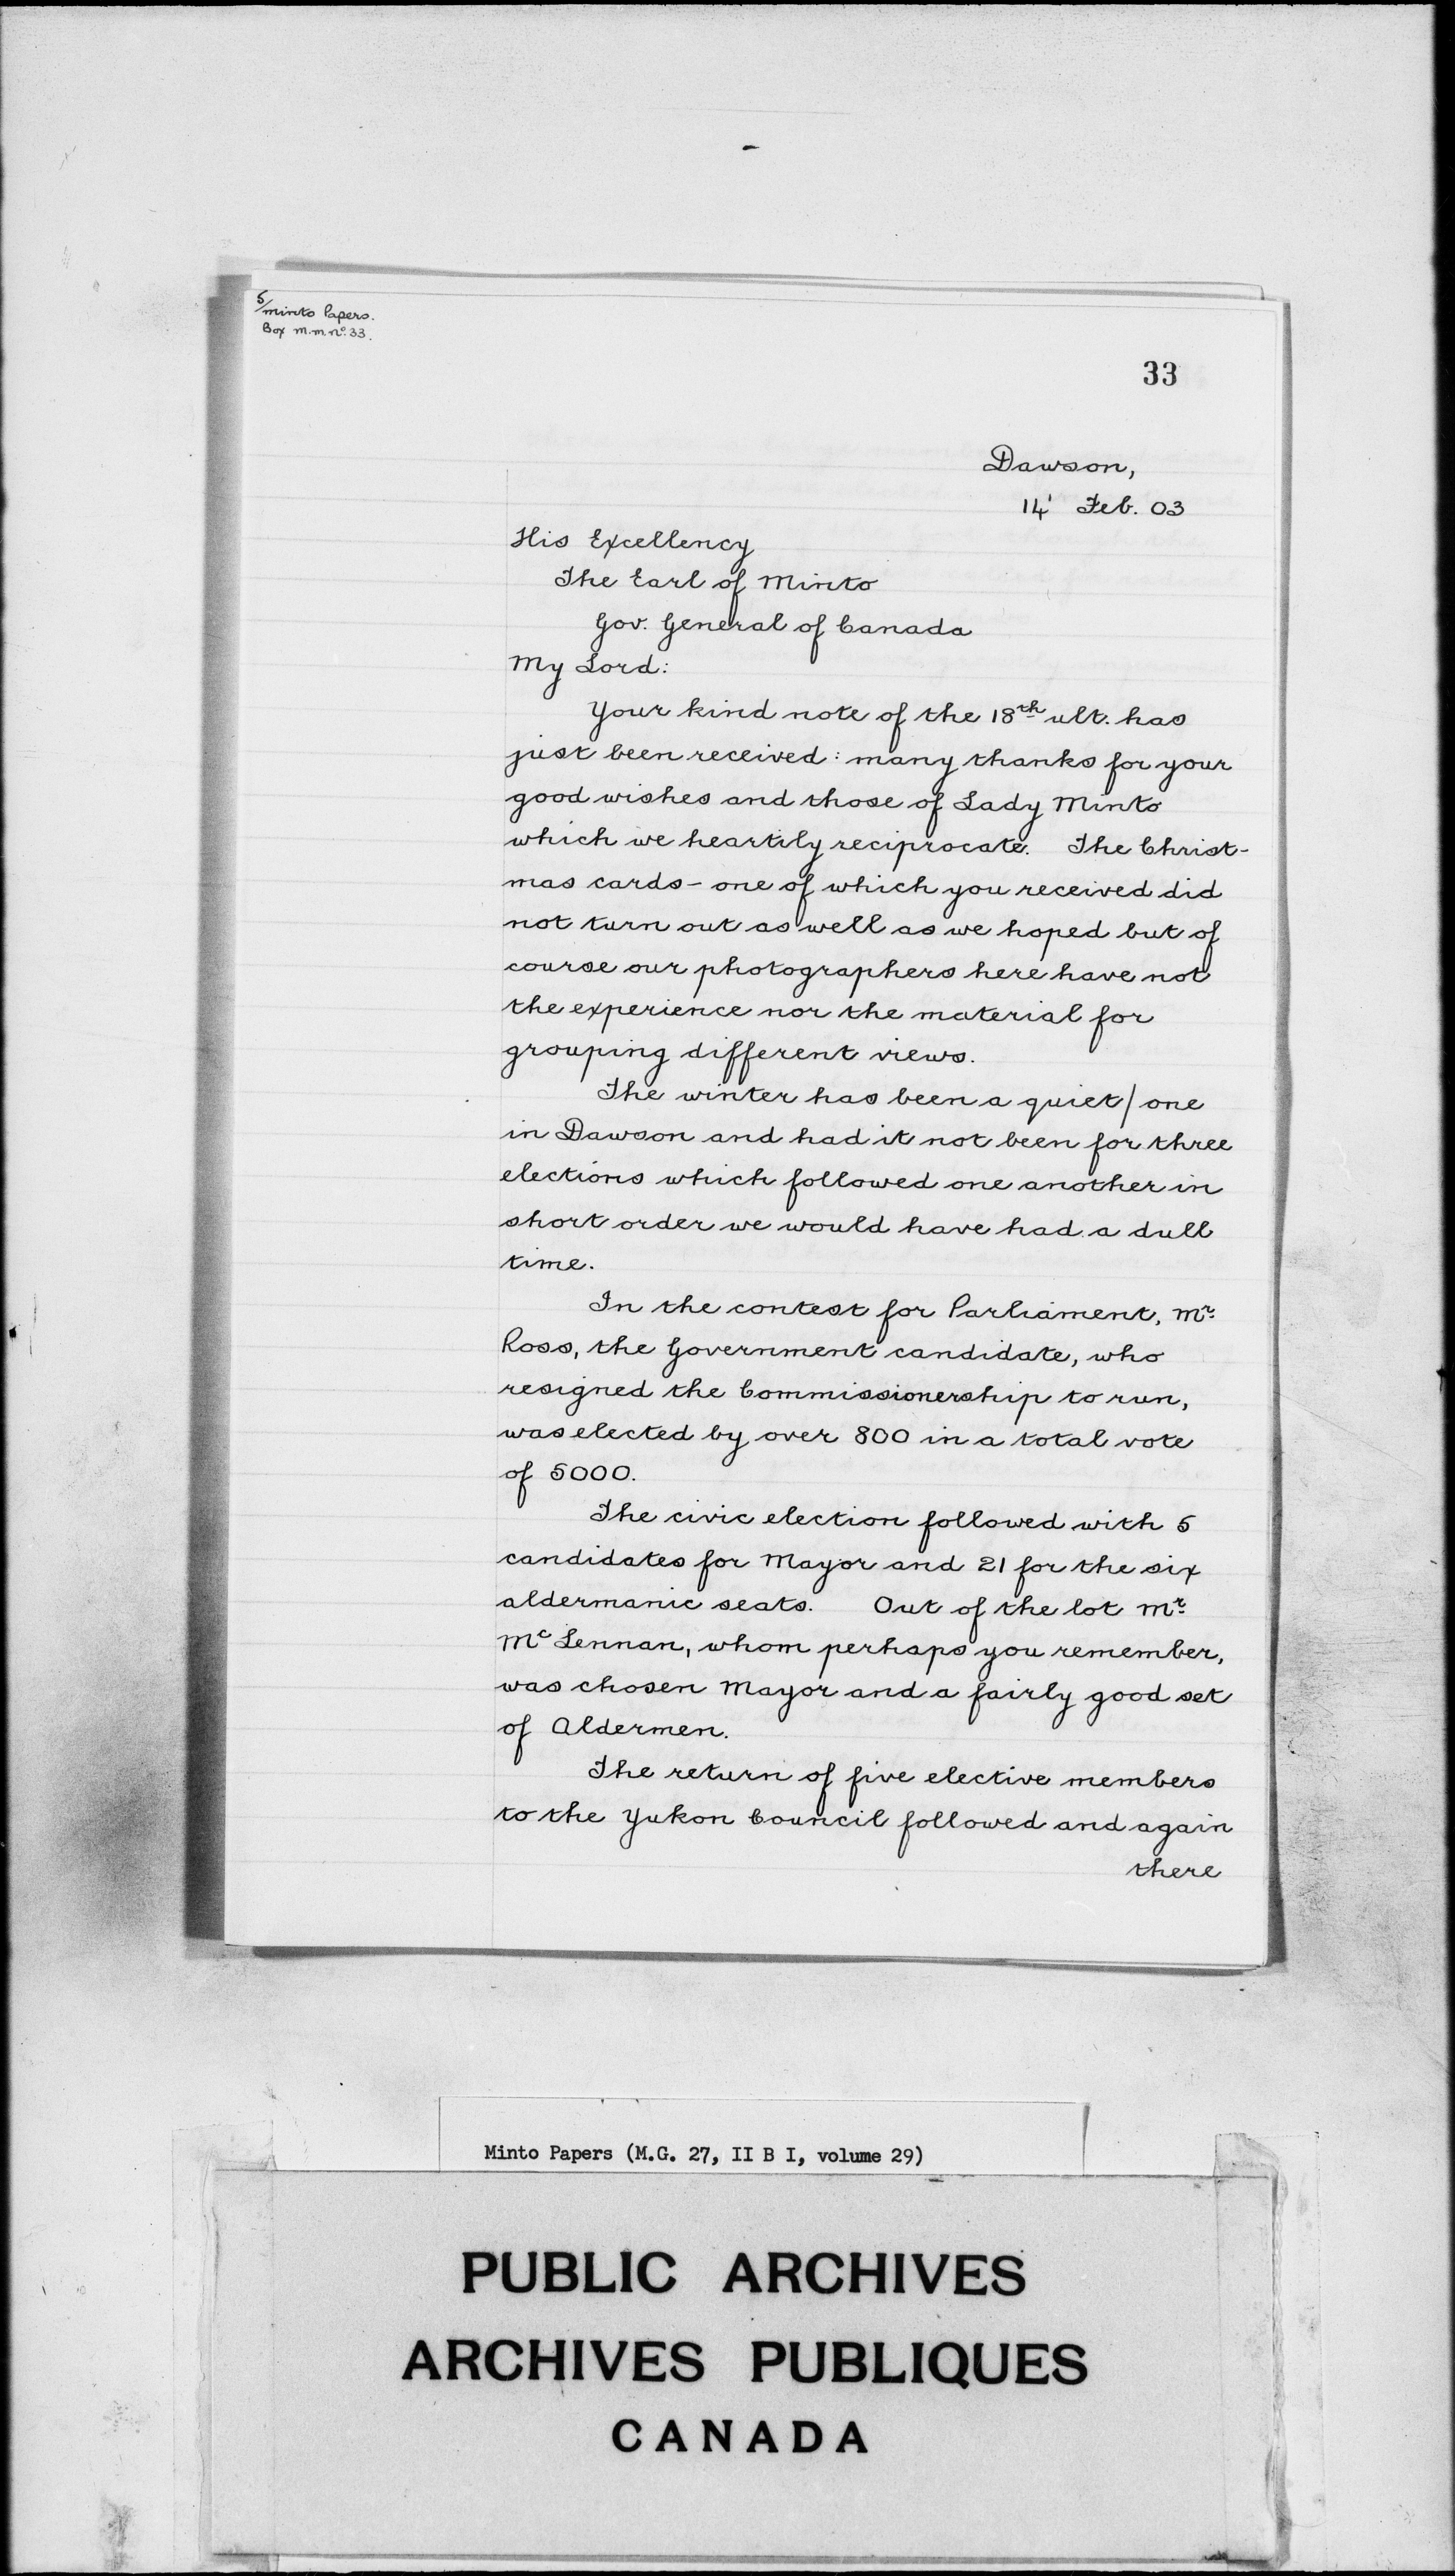 5/
Minto Papers.
Box M.M. No. 33.
33
Dawson,
14' Feb. 03
His Excellency
The Earl of Minto
Gov. General of Canada
My Lord:
Your kind note of the 18th ult. has
just been received: many thanks for your
good wishes and those of Lady Minto
which we heartily reciprocate. The Christ-
mas cards - one of which you received did
not turn out as well as we hoped but of
course our photographers here have not
the experience nor the material for
grouping different views.
The winter has been a quiet/one
in Dawson and had it not been for three
elections which followed one another in
short order we would have had a dull
time.
In the contest for Parliament, Mr.
Ross, the Government candidate, who
resigned the Commissionership to run,
was elected by over 800 in a total vote
of 5000.
The civic election followed with 5
candidates for Mayor and 21 for the six
aldermanic seats. Out of the lot Mr.
McLennan, whom perhaps you remember,
was chosen Mayor and a fairly good set
of Aldermen.
The return of five elective members
to the Yukon Council followed and again
there
Minto Papers (M.G. 27, II B I, volume 29)
PUBLIC ARCHIVES
ARCHIVES PUBLIQUES
CANADA